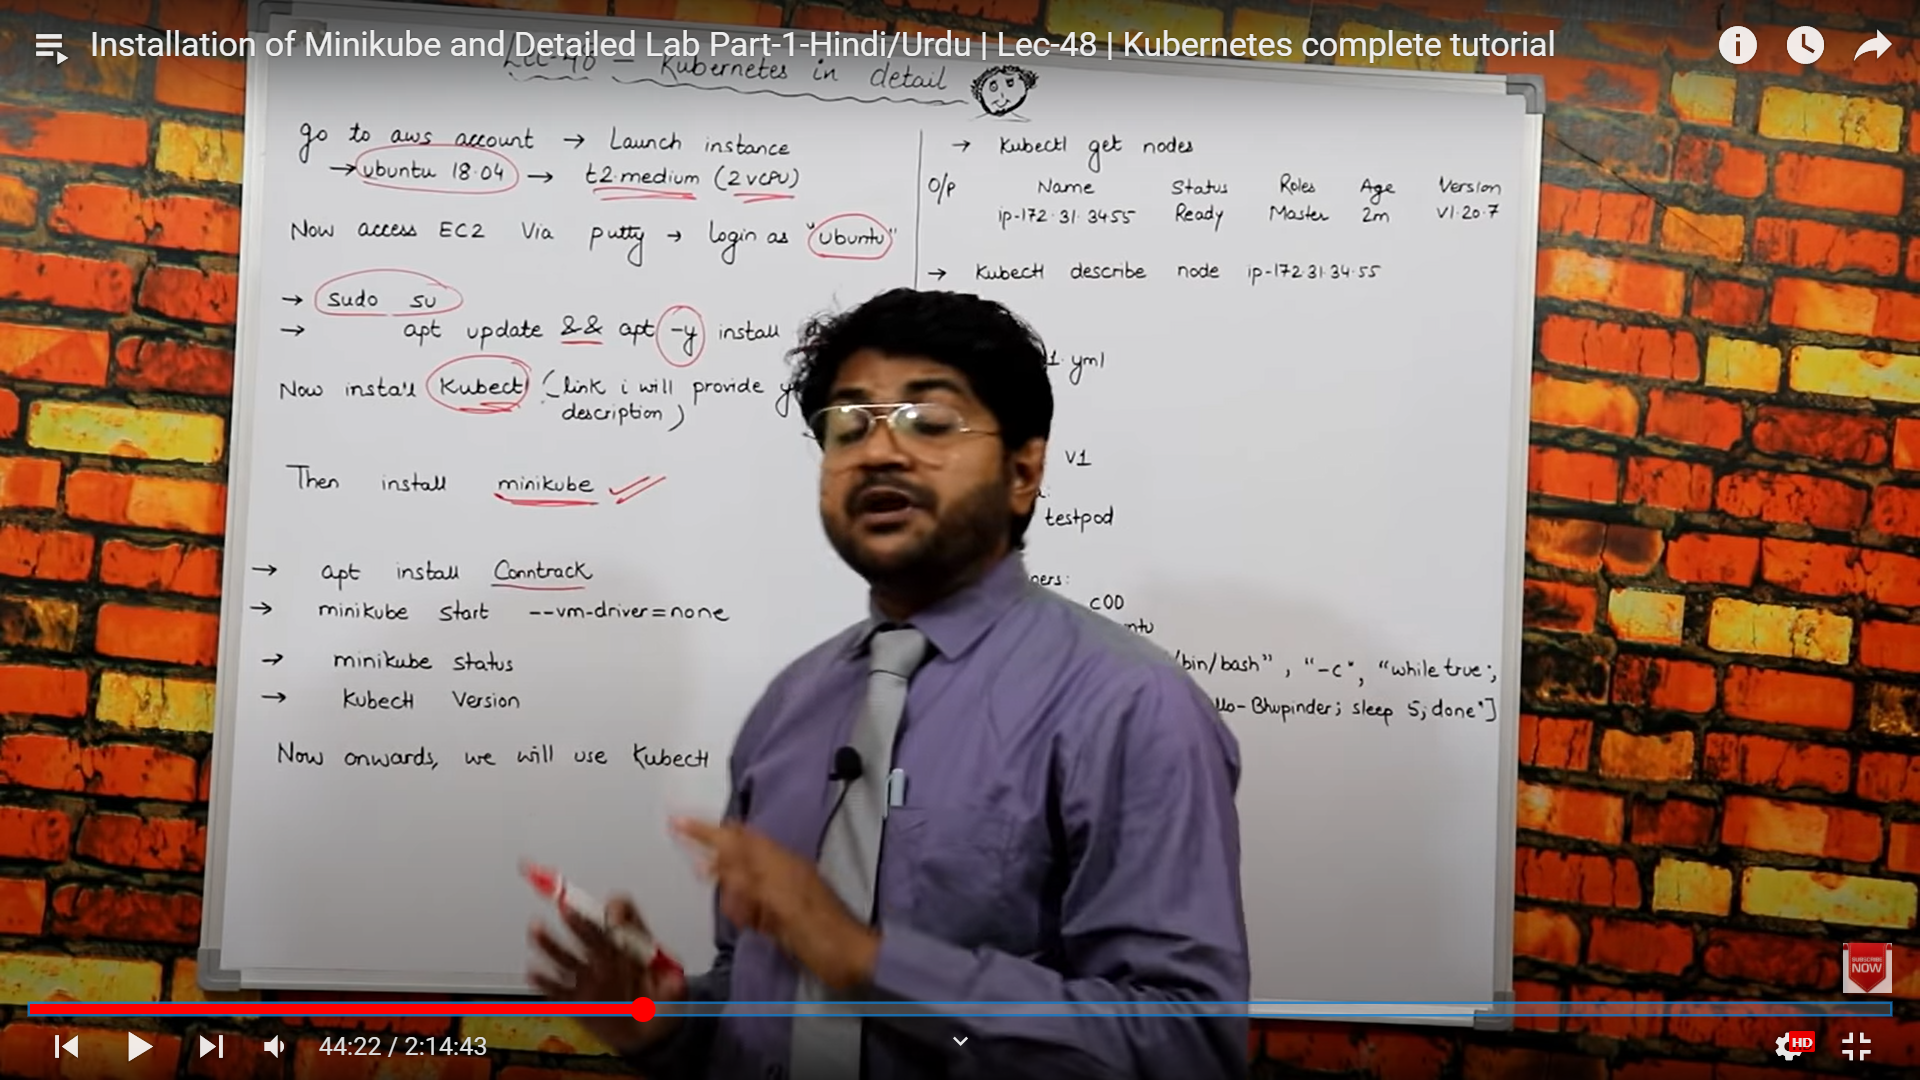 Installation of Minikube and Detailed Lab Part-1-Hindi/Urdu | Lec-48 | Kubernetes complete tutorial
Lec-48 – Kubernetes in detail
go to aws account → Launch instance
→ ubuntu 18.04 → t2.medium (2 vCPU)
Now access EC2 Via putty → login as "ubuntu"
→ sudo su
→ apt update && apt -y install
Now install Kubectl (link i will provide
description)
Then install minikube
→ apt install Conntrack
→ minikube start --vm-driver=none
→ minikube status
→ Kubectl Version
Now onwards, we will use Kubectl
→ Kubectl get nodes
O/p Name Status Roles Age Version
ip-172.31.3455 Ready Master 2m V1.20.7
→ Kubectl describe node ip-172.31.34.55
1.yml
v1
testpod
c00
/bin/bash", "-c", "while true;
llo-Bhupinder; sleep 5; done"]
SUBSCRIBE
NOW
44:22 / 2:14:43
HD